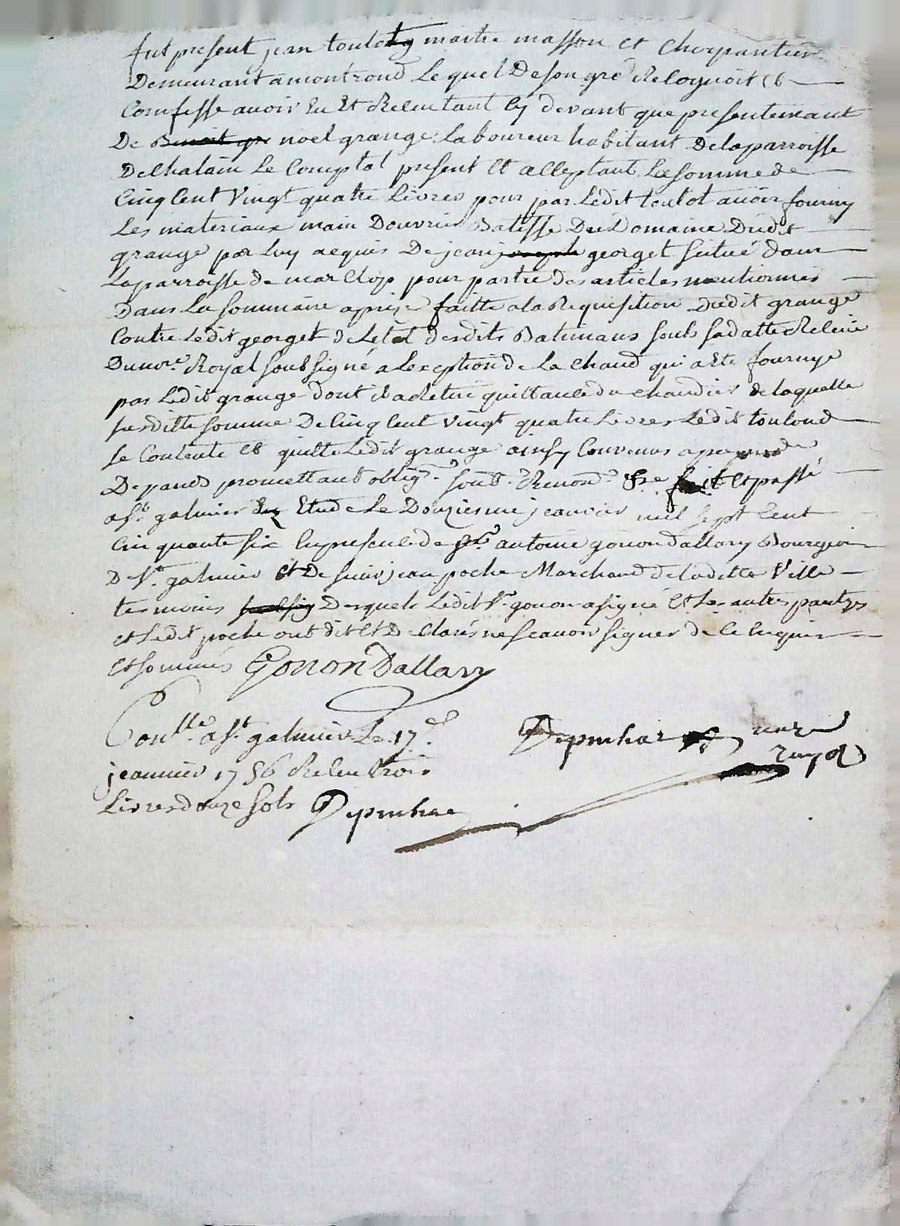 fut present jean toulot maitre masson et charpantier
Demeurant a montrond Lequel De son gré Relognoit et
Comfesse avoir Eu Et Reseu tant Cy devant que presentemant
De Benoit gr noel grange Laboureur habitant de la parroisse
De Chalain Le Comptal present Et acceptant La somme de
Cinq Cent Vingt quatre Livres pour par Ledit toulot avoir fourny
Les materiaux main Douvrier Batisse Du Domaine Dudit
grange par Luy acquis De jean joseph georget situé dans
La parroisse de marclop pour partie des articles mentionnés
Dans La sommaire aprise faitte a la Requisition dudit grange
Contre Ledit georget de Letat desdits Batimans soubs sa datte Releüe
Du no.re Royal soubsigné a Lexeption de La Chaud qui a Eté fournye
par Ledit grange dont il a Retiré quittance du chaudier de laquelle
susditte somme De Cinq Cent Vingt quatre Livres Ledit toulond
se Contente Et quitte Ledit grange ainsy Convenus a peine de
Depands promettant oblig.n soub.n Renon.n fait et passé
a St. galmier Etude Le Douzieme jeanvier mil sept Cent
Cinquante six En presence de antoine gonon dallary Bourgeois
De St. galmier Et De sieur jean poche Marchand de ladette Ville
temoins Desquels Ledit Sr. gonon a signé Et Les autres partyes
et Ledit poche ont dit Et De Claré ne scavoir signer de Ce Enquis
Et sommés Gonon Dallary
Con.lle a St. galmier Le 17.e
jeanvier 1756 Reseu trois
Livres douze sols